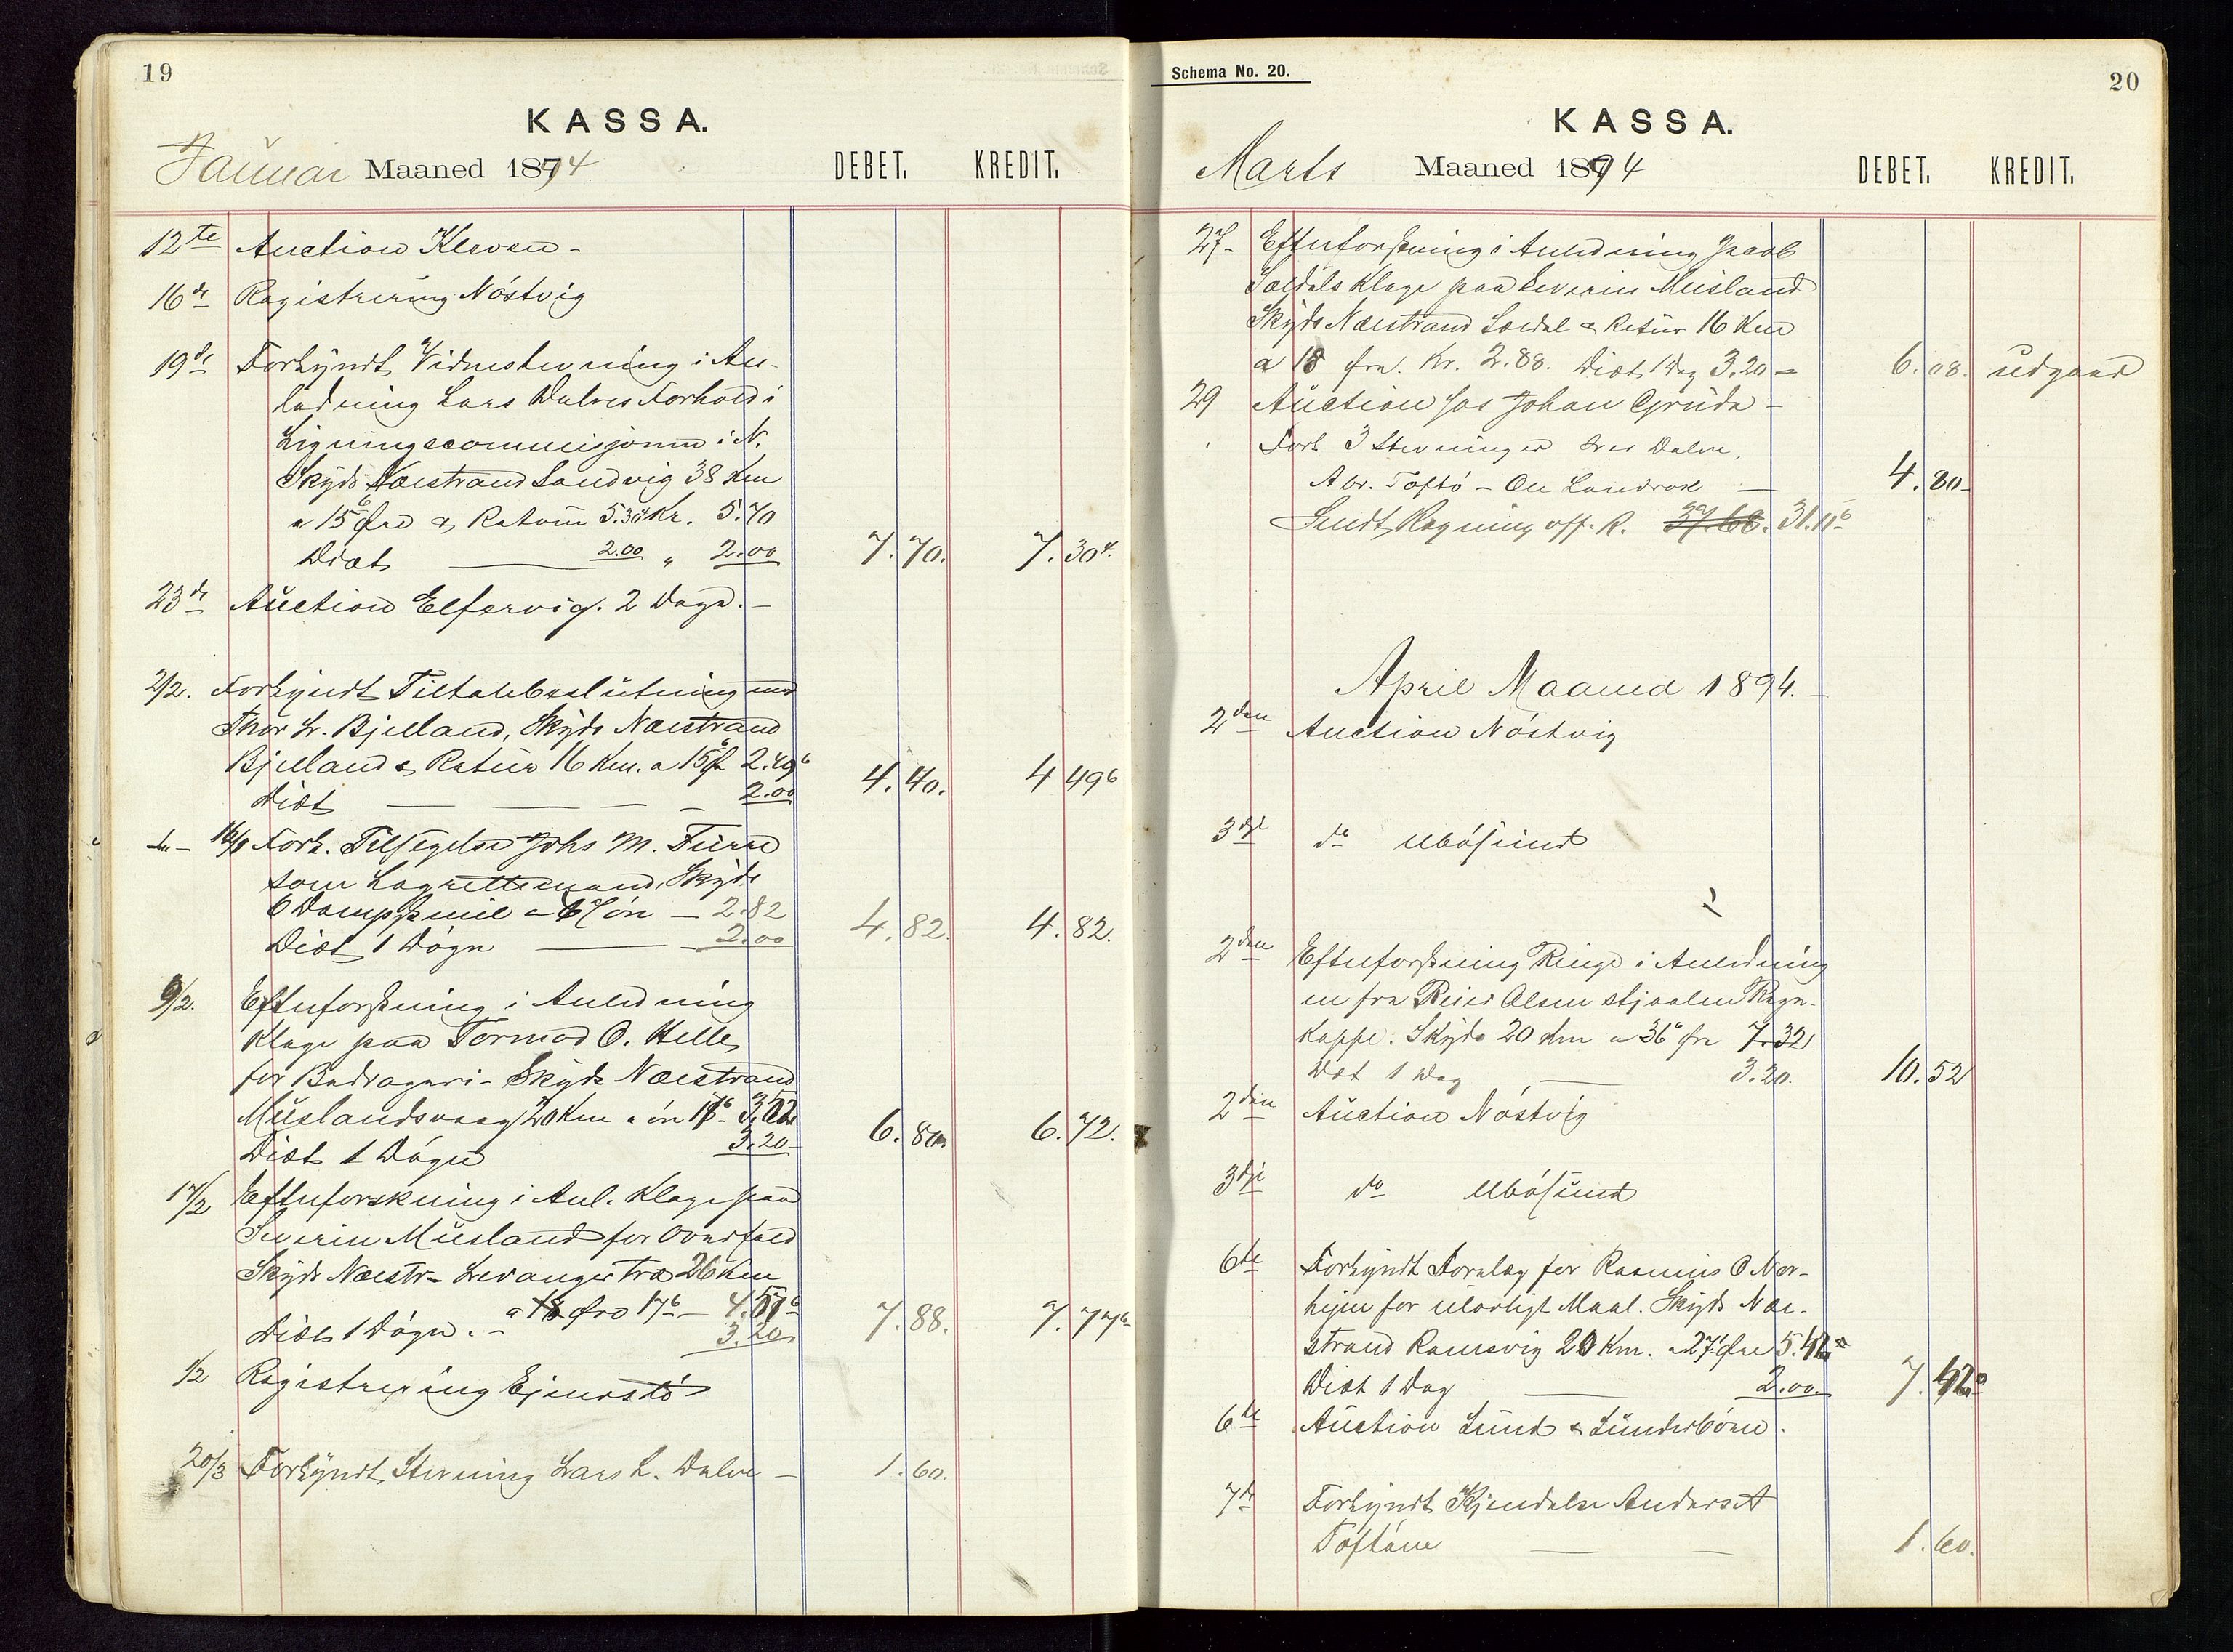 19
KASSA.
Januar Maaned 1894 DEBET. KREDIT.
12te Auction Kleven -
16de Registrering Nóstvig
19de Forkyndt Vidnestevning i An-
ledning Lars Dalves Forhold i
Ligningscommisjonen i N.
Skyds Nærstrand Sandvig 38 Km
a 15 Øre & Retour 5.30⁴ Kr. 5.70
Diæt — 2.00 „ 2.00 7.70. 7.30⁴
23de Auction Elfervig. 2 Dage. -
2/2. Forkyndt Tiltalebeslutning mod
Thor L. Bjelland, Skyds Nærstrand
Bjelland & Retur 16 Km. a 15⁶ Ør 2.49⁶
Diæt — — — 2.00 4.40. 4 49⁶
Fork. Tilsigelse Johs M. Furre
som Lagrettemand, Skyds
6 Dampskmil a 47 øre — 2.82
Diæt 1 Dógn — 2.00 4.82. 4.82.
9/2. Efterforskning i Anledning
Klage paa Tormod O. Helle,
for Bedrageri - Skyds Nærstrand
Muslandsvaag 20 Km a øre 17⁶ - 3.52
Diæt 1 Dógn 3.20 6.80 6.72.
17/2 Efterforskning i Anl. Klage paa
Severin Musland for Overfald
Skyds Næstr- Levanger tra 26 Km
a 18 Øre 17⁶ — 4.57⁶
Diæt 1 Dógn. - 3.20 7.88. 7.77⁶
1/2 Registrering Ejenestó
20/3 Forkyndt Stevning Lars L. Dalve - 1.60.
Schema No. 20.
20
KASSA.
Marts Maaned 1894 DEBET. KREDIT.
27- Efterforskning i Anledning Jacob
Soedals Klage paa Severin Musland
Skyds Nærstrand Soedal & Retur 16 Km
a 18 Øre. Kr. 2.88. Diæt 1 Dag 3.20 - 6.08. udgaard
29 Auction hos Johan Gruda -
Fork 3 Stevninger Lars Dalve,
Abr. Toftó - Ole Landrak — 4.80-
Sendt Regning off. R. 37.68. 31.11⁶
April Maaned 1894. -
2den Auction Nóstvig
3dje do Ubósund
2den Efterforskning Ringe i Anledning
en fra Reier Olsen stjaalen Regn-
kappe. Skyds 20 Km a 36⁶ Øre 7.32
Diæt 1 Dag — 3.20. 10.52
2den Auction Nóstvig
3dje do Ubósund
6te Forkyndt Forelæg for Rasmus O Nor-
hejm for ulovligt Maal. Skyds Nær-
strand Ramsvig 20 Km. a 27¹ Øre 5.42
Diæt 1 Dag — 2.00. 7.42
6te Auction Lund & Lunderbóen.
7de Forkyndt Kjendelse Anders A
Toftóne — — 1.60.